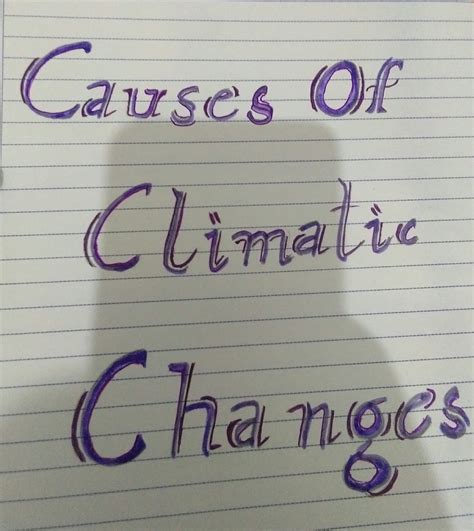 Causes Of
Climatic
Changes